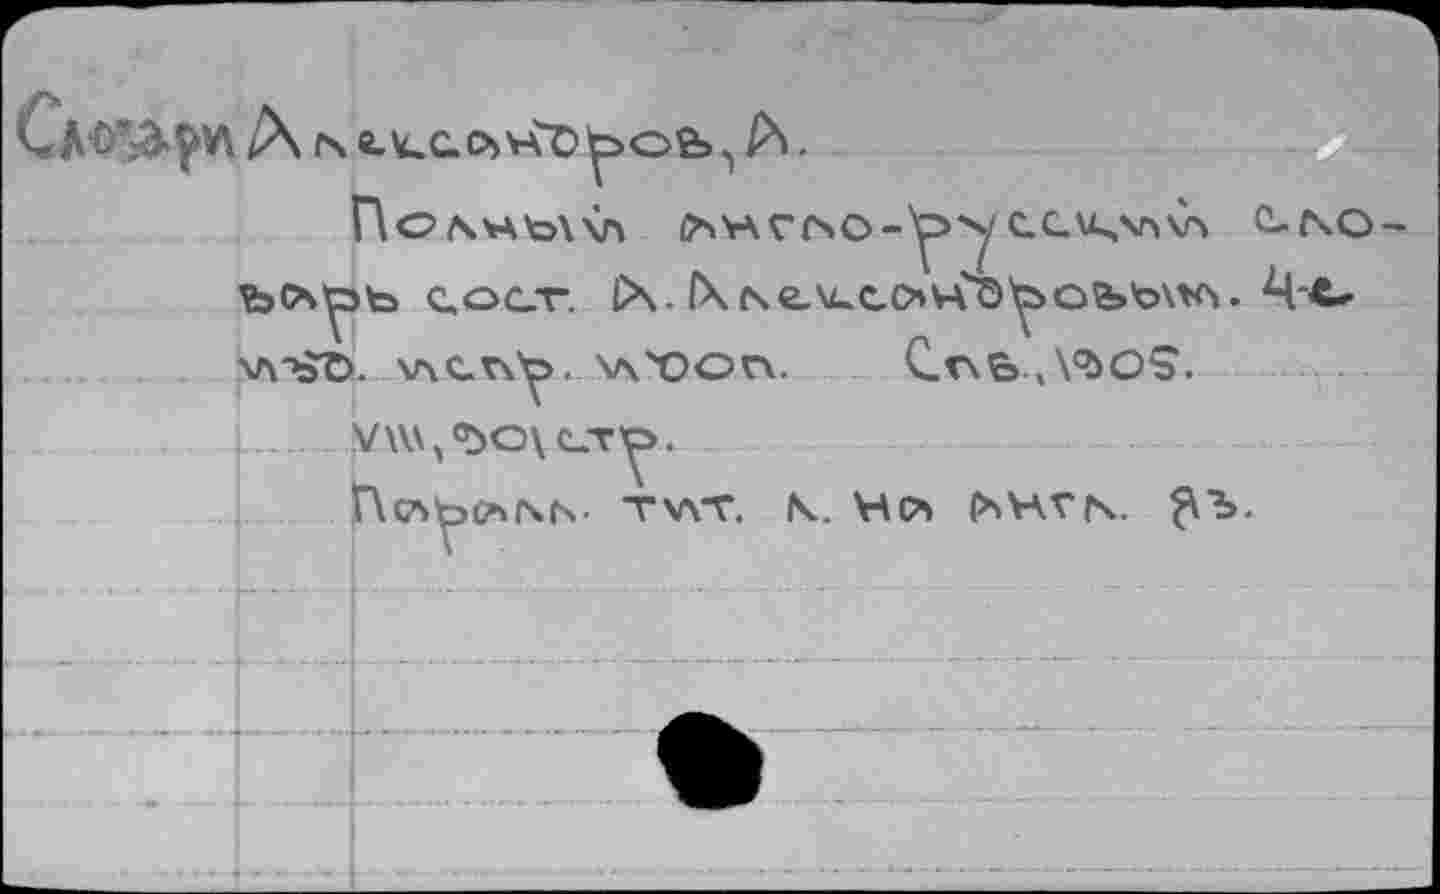 Словари Александров, А.
Полный англо-русский сло-
варь сост. А. Александровым. 4-е
изд. испр. и доп. Спб., 1905.
VIII, 901 стр.
Паралл. тит. л. на англ. яз.